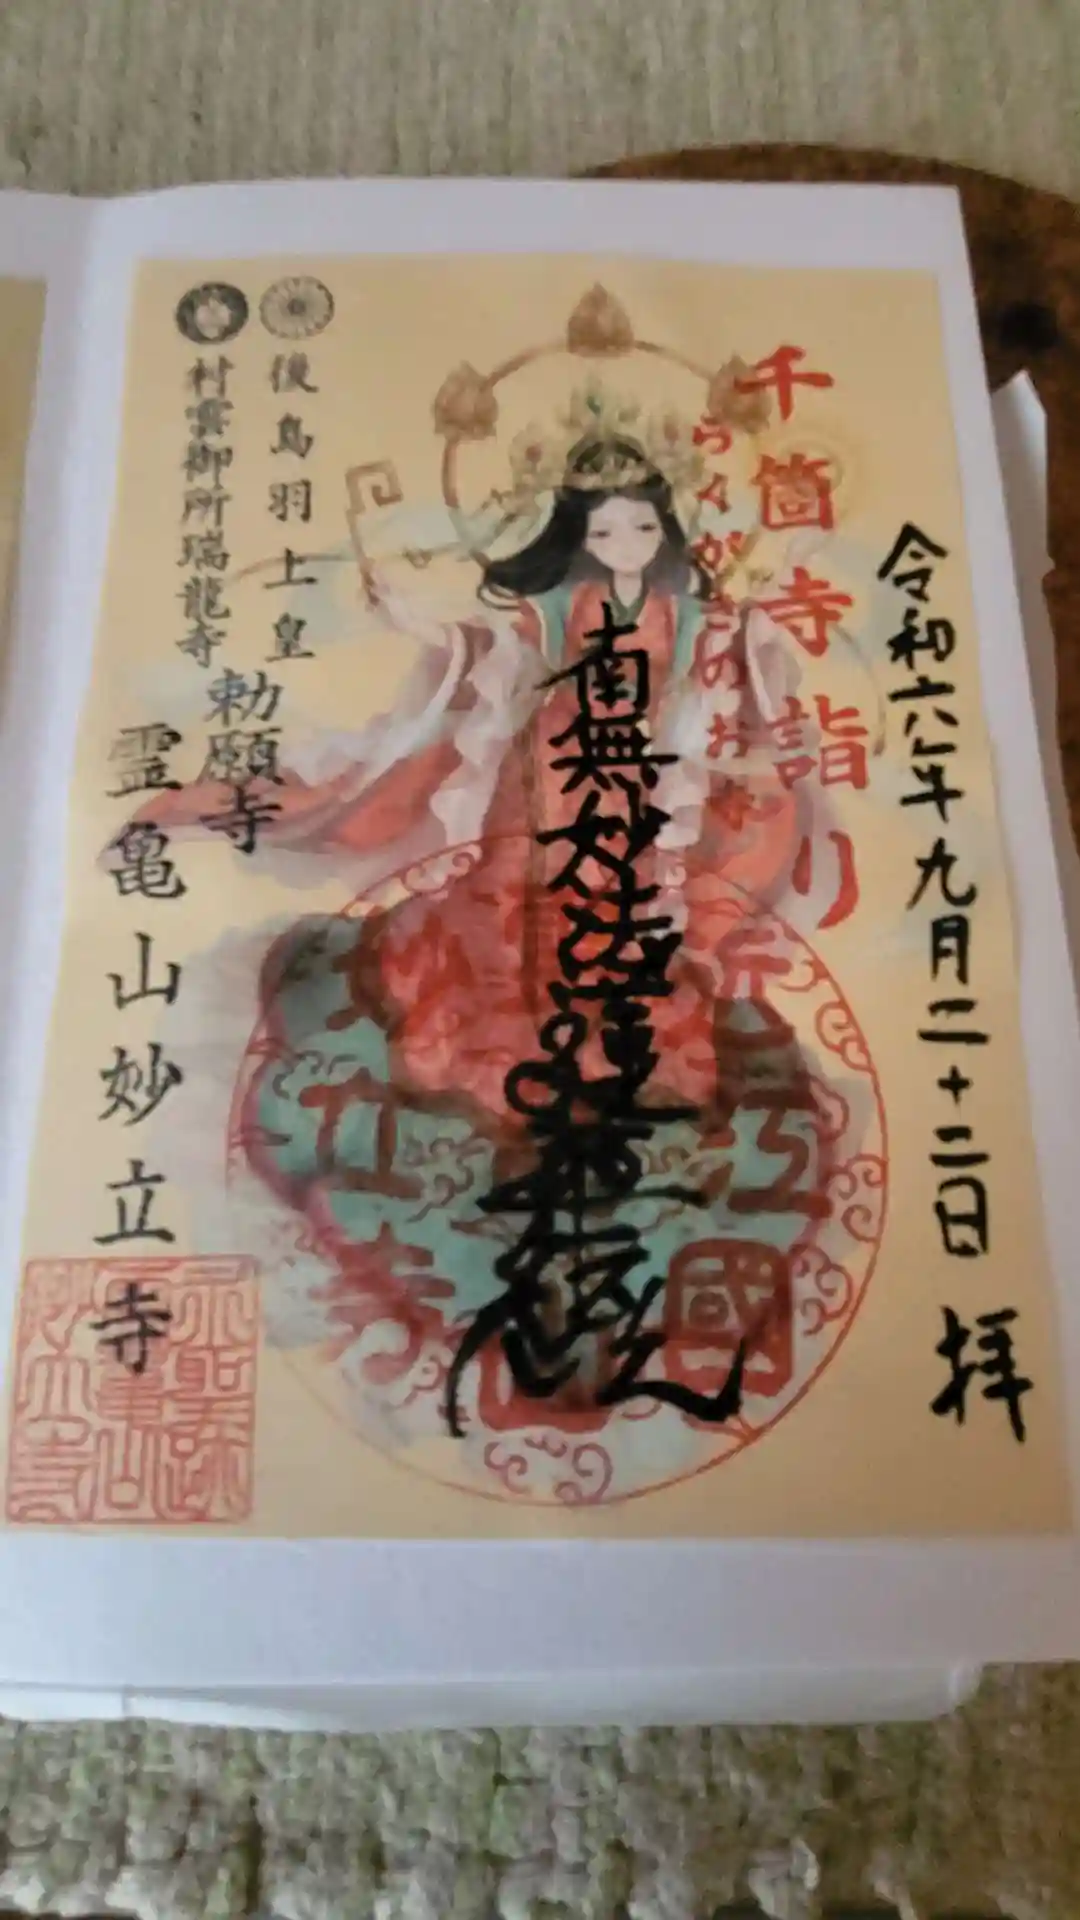 令和六年九月二十二日 拝
千箇寺詣り
らくがきのお寺
南無妙法蓮華経
後鳥羽上皇
村雲御所瑞龍寺
勅願寺
霊亀山妙立寺